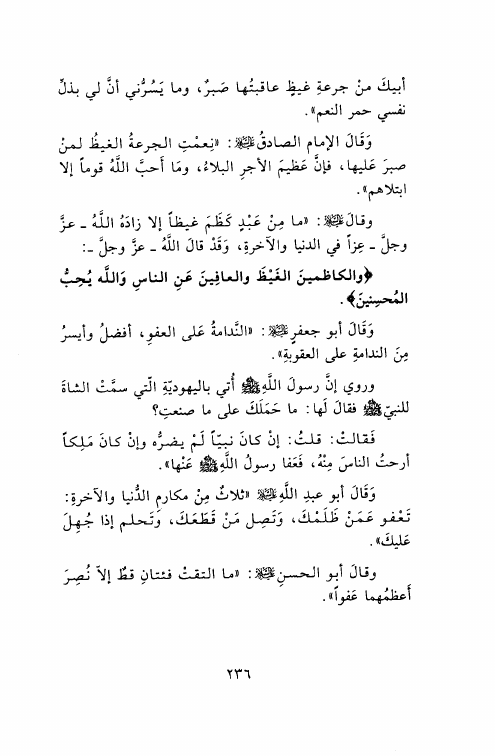 أبيكَ منْ جرعةِ غيظٍ عاقبتُها صَبرٌ، وما يَسُرُّني أنَّ لي بذلِّ
نفسي حمر النعم».
وَقَالَ الإمام الصادقُ ﷺ: «نِعمْتِ الجرعةُ الغيظُ لمنْ
صبرَ عَليها، فإنَّ عَظيمَ الأجرِ البلاءُ، ومَا أحبَّ اللَّهُ قوماً إلا
ابتلاهم».
وقالَ ﷺ: «ما مِنْ عَبْدٍ كَظَمَ غيظاً إلا زادَهُ اللَّهُ ـ عزَّ
وجلَّ ـ عِزاً في الدنيا والآخرةِ، وَقَدْ قالَ اللَّهُ ـ عزَّ وجلَّ ـ:
﴿والكاظمينَ الغَيْظَ والعافِينَ عَنِ الناسِ وَاللَّه يُحِبُّ
المُحسِنِينَ﴾.
وَقَالَ أبو جعفرٍ ﷺ: «النَّدامةُ عَلى العفوِ، أفضلُ وأيسرُ
مِنَ الندامةِ على العقوبةِ».
وروي إنَّ رسولَ اللَّهِ ﷺ أُتي باليهوديّةِ الّتي سمَّتْ الشاةَ
للنبيِّ ﷺ فقالَ لَها: ما حَمَلَكَ على ما صنعتِ؟
فَقالتْ: قلتُ: إنْ كانَ نبيّاً لَمْ يضرُّه وإنْ كانَ مَلِكاً
أرحتُ الناسَ مِنْهُ، فَعَفا رسولُ اللَّهِ ﷺ عَنْها».
وَقَالَ أبو عبدِ اللَّهِ ﷺ «ثلاثٌ مِنْ مكارمِ الدُّنيا والآخرةِ:
تَعْفو عَمَنْ ظَلَمْكَ، وَتَصِل مَنْ قَطَعَكَ، وَتَحلم إذا جُهِلَ
عَليكَ».
وقالَ أبو الحسنِ ﷺ: «ما التقتْ فئتانِ قطُ إلاّ نُصِرَ
أعظمُهما عَفواً».
٢٣٦